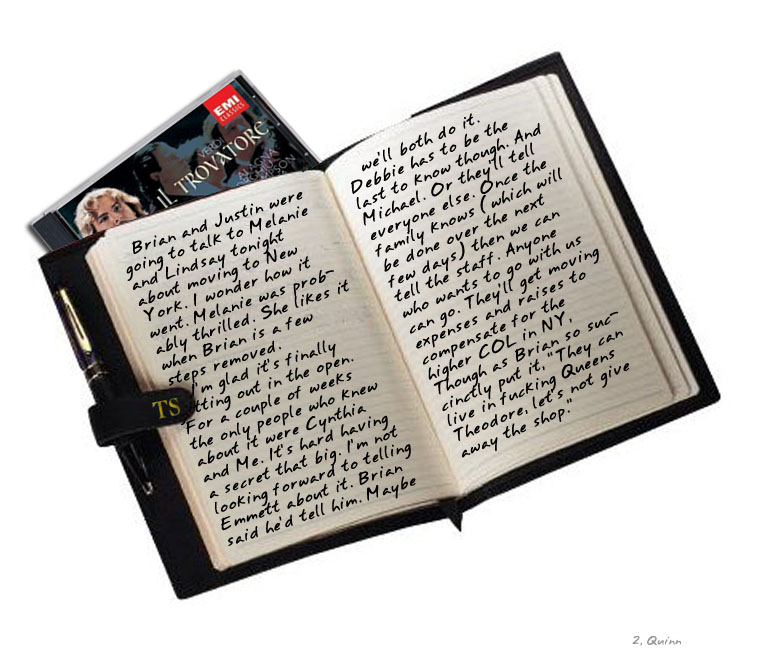 EMI
CLASSICS
VERDI
IL TROVATORE
ALAGNA
Brian and Justin were
going to talk to Melanie
and Lindsay tonight
about moving to New
York. I wonder how it
went. Melanie was prob-
ably thrilled. She likes it
when Brian is a few
steps removed.
I'm glad it's finally
tting out in the open.
For a couple of weeks
the only people who knew
about it were Cynthia
and Me. It's hard having
a secret that big. I'm not
looking forward to telling
Emmett about it. Brian
said he'd tell him. Maybe
we'll both do it.
Debbie has to be the
last to know though. And
Michael. Or they'll tell
everyone else. Once the
family knows (which will
be done over the next
few days) then we can
tell the staff. Anyone
who wants to go with us
can go. They'll get moving
expenses and raises to
compensate for the
higher COL in NY,
Though as Brian so suc-
cinctly put it, "They can
live in fucking Queens
Theodore, let's not give
away the shop."
TS
2, Quinn